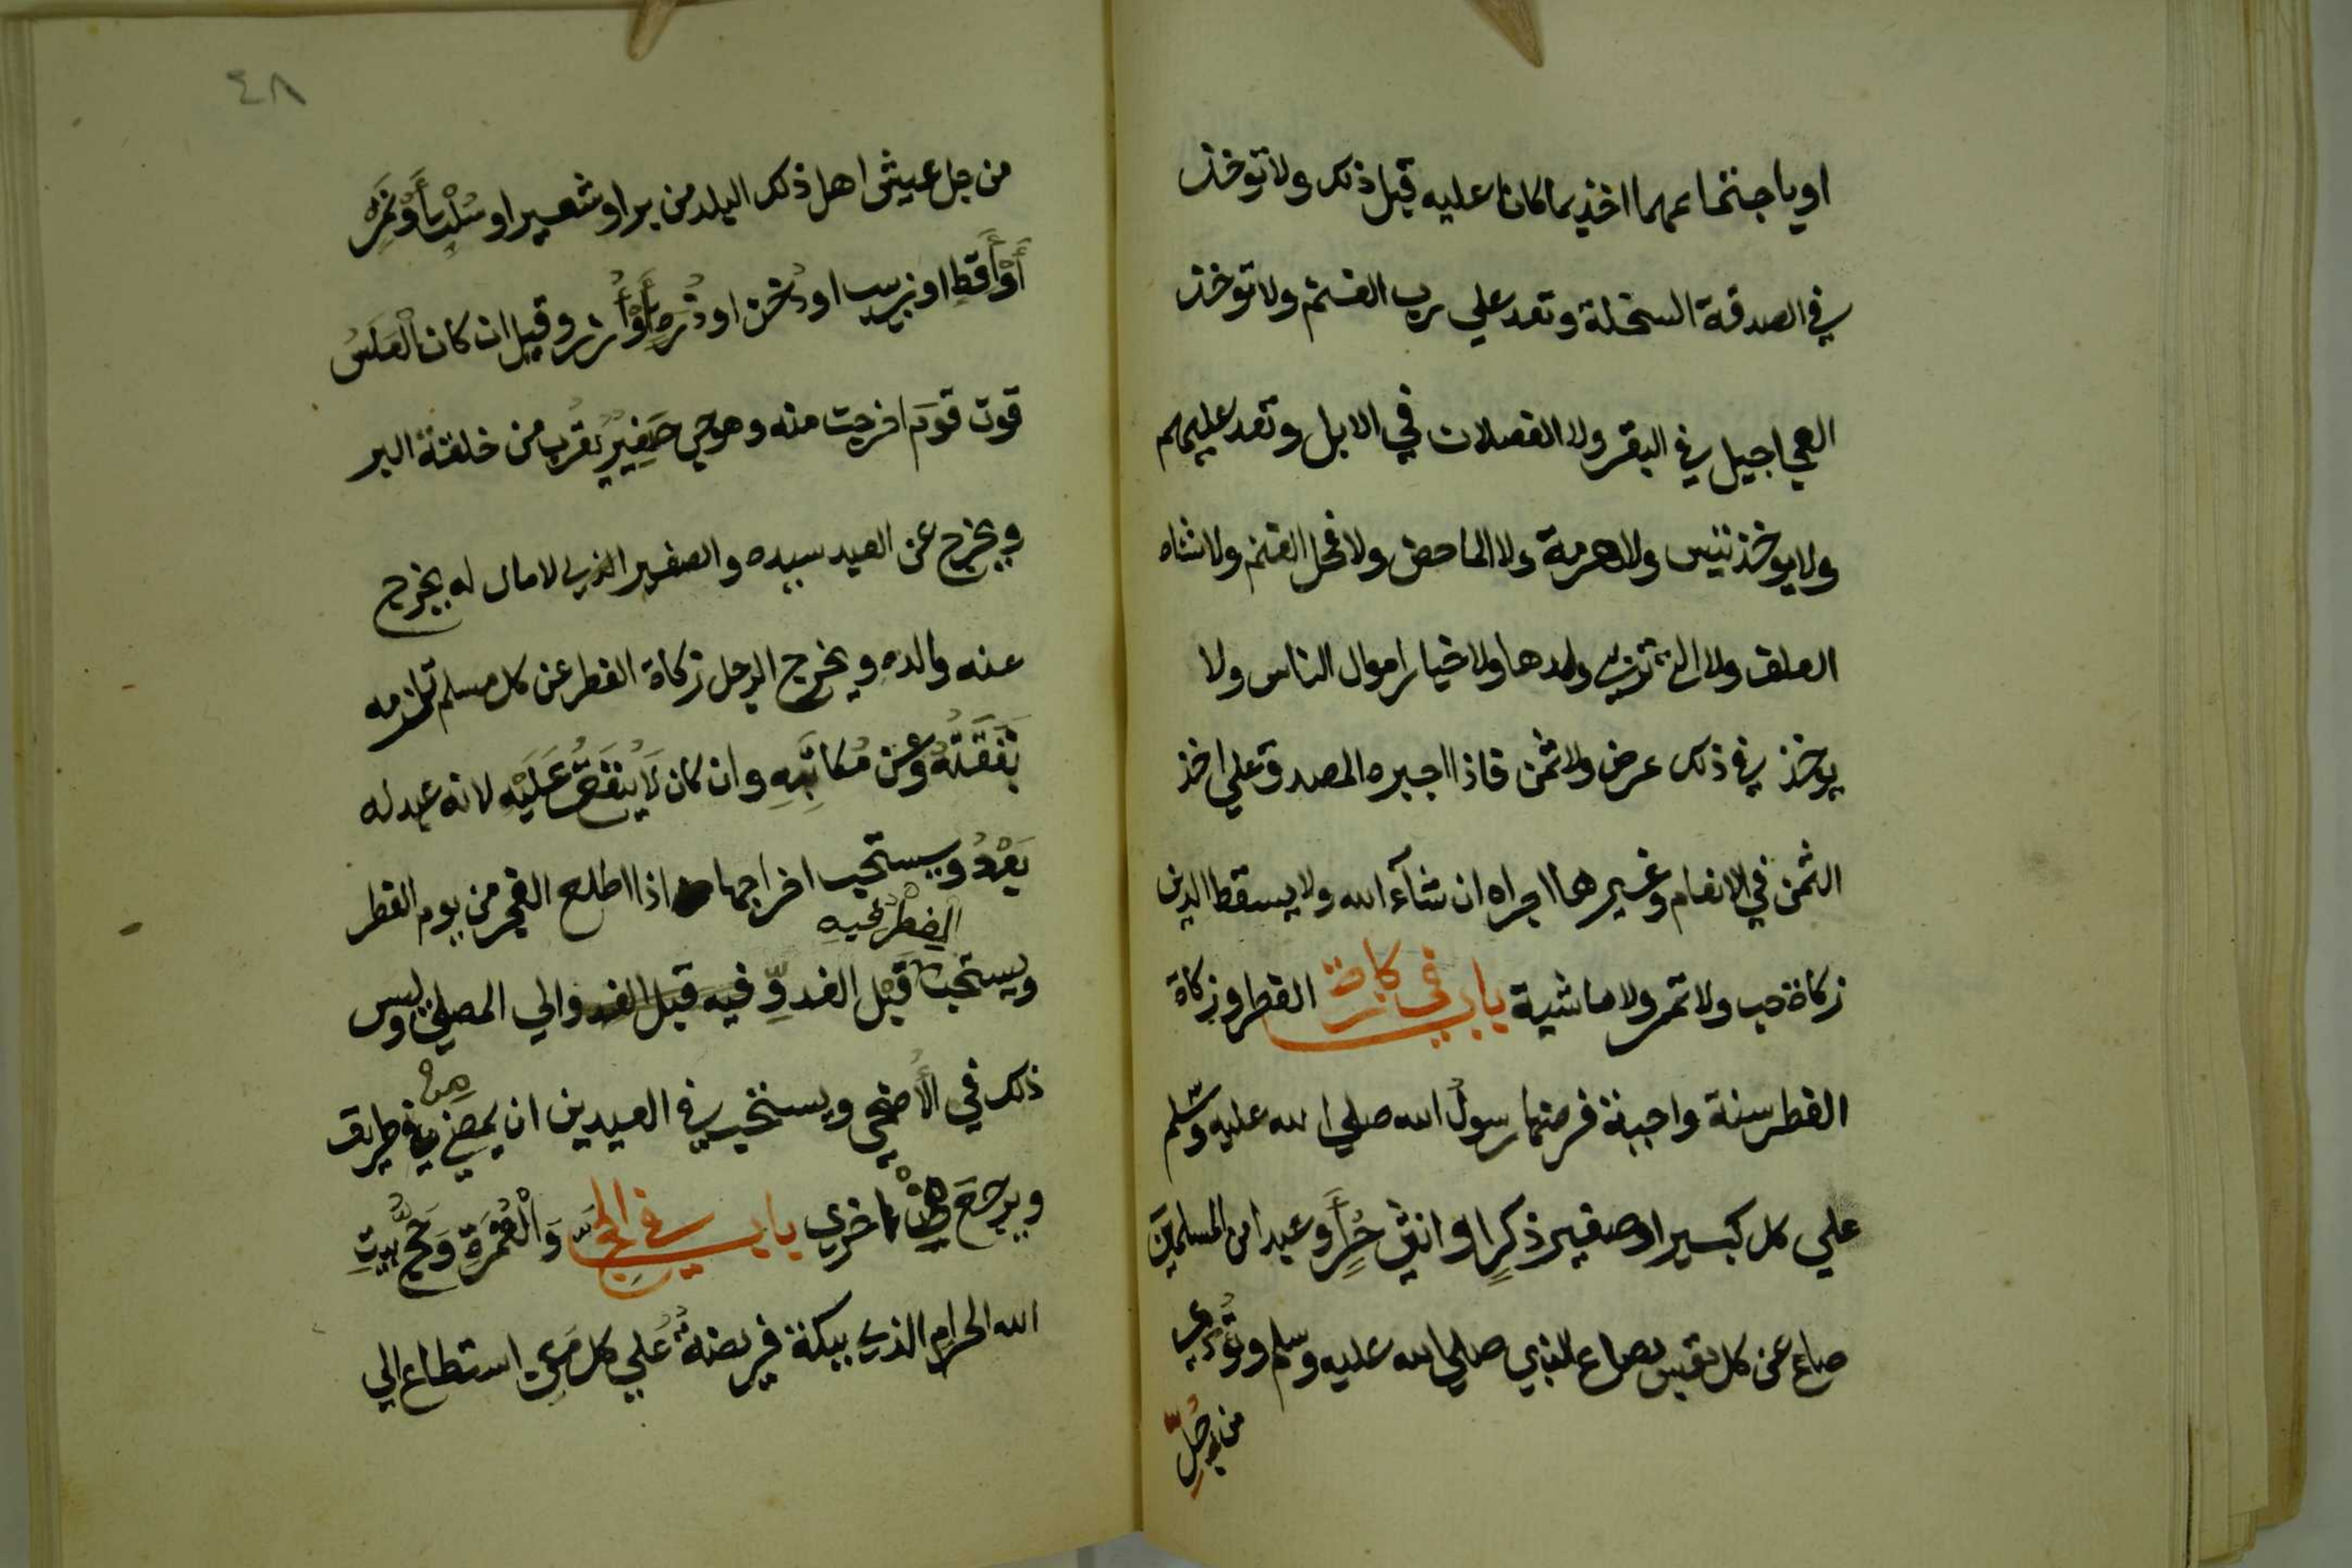 او باجتماعهما اخذ بما كانا عليه قبل ذلك ولا توخذ
في الصدقة السخلة وتعد علي رب الغنم ولا توخذ
العجاجيل في البقر ولا الفصلان في الابل وتعد عليهم
ولا يوخذ تيس ولا هرمة ولا الماخض ولا فحل الغنم ولا شاه
العلف ولا التي تربي ولدها ولا خيار اموال الناس ولا
يوخذ في ذلك عرض ولا ثمن فاذا اجبره المصدق علي اخذ
الثمن في الانعام وغيرها اجزاه ان شآء الله ولا يسقط الدين
زكاة حب ولا تمر ولا ماشية باب في زكاة الفطر وزكاة
الفطر سنة واجبة فرضها رسول الله صلي الله عليه وسلم
علي كل كبير او صغير ذكرٍ او انثي حُرٍّ أو عبد من المسلمين
صاع عن كل نفس بصاع النبي صلي الله عليه وسلم وتُؤدي
من جُلِّ
٤٨
من جل عيش اهل ذلك البلد من بر او شعير او سُلْتٍ أَوْ تَمْرٍ
أَوْ أَقِطٍ او زبيب او دُخن او ذُرَةٍ أَوْ أُرز وقيل ان كان العَلَسُ
قوت قَوم اخرجت منه وهو حب صَغِيرٌ يَقرُب من خلقة البر
ويخرج عن العبد سيده والصغير الذي لا مال له يخرج
عنه والده ويخرج الرجل زكاة الفطر عن كل مسلم تلزمه
نَفَقَتُهُ وعن مُكاتَبِهِ وان كان لَا يُنْفِقُ عَلَيْهِ لانه عبد له
بَعْدُ ويستحب اخراجها اذا طلع الفجر من يوم الفطر
الفِطْرُ فيهِ
ويستحب قبل الغدوِّ فيه قبل الغدو الي المصلي وليس
ذلك في الأضحي ويستحب في العيدين ان يمضي من طريق
ويرجعَ من اخري باب في الحجِّ وَالْعُمْرَةِ وَحَجُّ بَيْتِ
الله الحرام الذي ببكة فريضةٌ علي كل مَن استطاع الي